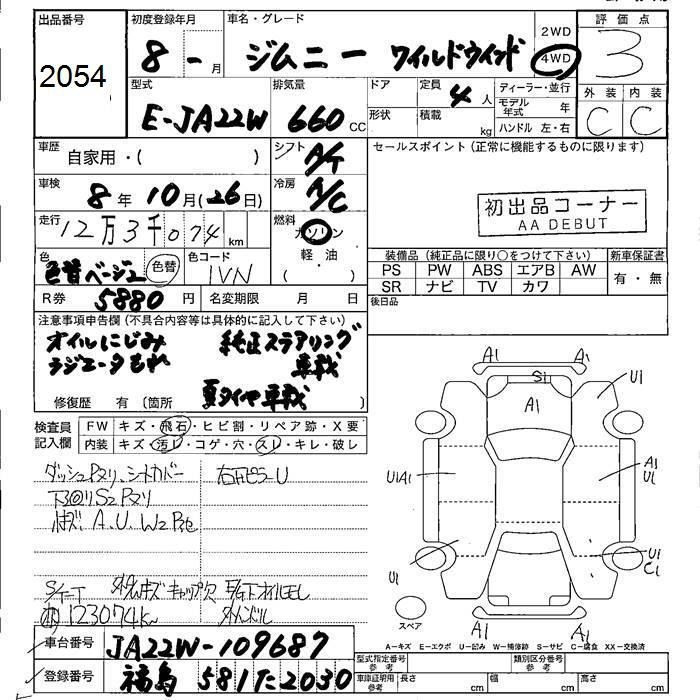 出品番号 初度登録年月 車名・グレード 評価点
2054 8 - 月 ジムニー ワイルドウインド 2WD 4WD 3
型式 排気量 ドア 定員 4 人 ディーラー・並行 外装 内装
E-JA22W 660 CC 形状 積載 kg モデル年式 年 C C
ハンドル 左・右
車歴 自家用・( ) シフト A/T セールスポイント (正常に機能するものに限ります)
車検 8 年 10 月 (26 日) 冷房 A/C 初出品コーナー
AA DEBUT
走行 12万3千074 km 燃料 ガソリン
軽・油
色 色替ベージュ 色替 色コード 1VN 装備品 (純正品に限り○をつけて下さい) 新車保証書
PS PW ABS エアB AW 有・無
R券 5880 円 名変期限 月 日 SR ナビ TV カワ
注意事項申告欄 (不具合内容等は具体的に記入して下さい) 後日品
オイルにじみ 純正ステアリング
ラジエータもれ 車載
夏タイヤ車載
修復歴 有 (箇所
検査員 FW キズ・飛石・ヒビ割・リペア跡・X要
記入欄 内装 キズ・汚レ・コゲ・穴・スレ・キレ・破レ
A1 A1
S1 U1
A1
ダッシュPヌリ、シートカバー 右Aピラー U
U1A1 A1
U1
下回リS2 Pヌリ
A.U.W2
U1 U1
C1
キャップ欠 下オイルモレ
123074K 外ハンドル
スペア A1 A1
A-キズ E-エクボ U-凹み W-補修跡 S-サビ C-腐食 XX-交換済
車台番号 JA22W-109687
型式指定番号 参考 類別区分番号 参考
登録番号 福島 581た2030
車庫証明用 参考 長さ cm 幅 cm 高さ cm